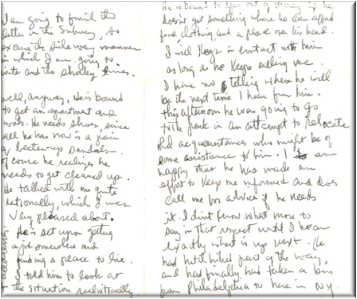 I am going to finish this
letter in the subway, so
excuse the side way manner
in which I am going to
write and the shakey lines.
well, anyway, He is bound
to get an apartment and
work. He needs shoes, since
all he has now is a pair
of beaten-up sandals -
of course he realizes he
needs to get cleaned up.
He talked with me quite
rationally, which I was
very pleased about.
He is set upon getting
a job somewhere and
finding a place to live.
I told him to look at
the situation realistically
He is bound to
doesn't get something where he can afford
food, clothing and a place over his head.
I will keep in contact with him
as long as he keeps calling me.
I have no telling when he will
be the next time I hear from him.
this afternoon he was going to go
to the park in an attempt to relocate
old acquaintances who might be of
some assistance to him. I am
happy that he has made an
effort to keep me informed and does
call me for advice if he needs
it. I don't know what more to
say in that respect until I hear
exactly what is up next. (He
had hitch hiked part of the way,
and had finally had taken a bus
from Philadelphia to here in NY.